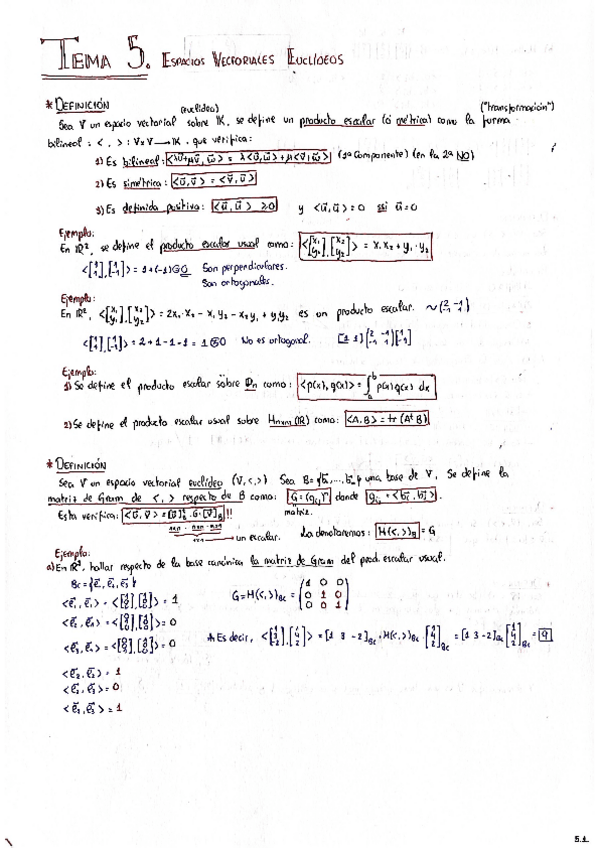 TEMA 5. ESPACIOS VECTORIALES EUCLÍDEOS
* DEFINICIÓN (euclídeo) ("transformación")
Sea V un espacio vectorial sobre IK, se define un producto escalar (ó métrica) como la forma
bilineal: < , > : V×V → IK, que verifica:
1) Es bilineal: <λū+μv̄, w̄> = λ<ū,w̄> + μ<v̄,w̄> (1ª componente) (en la 2ª NO)
2) Es simétrica: <ū,v̄> = <v̄,ū>
3) Es definida positiva: <ū,ū> ≥ 0 y <ū,ū> = 0 sii ū = 0
Ejemplo:
En IR², se define el producto escalar usual como: <[x₁ y₁],[x₂ y₂]> = x₁x₂ + y₁·y₂
<[1 1],[1 -1]> = 1+(-1) = 0 Son perpendiculares.
Son ortogonales.
Ejemplo:
En IR², <[x₁ y₁],[x₂ y₂]> = 2x₁·x₂ - x₁y₂ - x₂y₁ + y₁y₂ es un producto escalar. ~ (2 -1 -1 1)
<[1 1],[1 -1]> = 2+1-1-1 = 1 ≠ 0 No es ortogonal. [1 1](2 -1 -1 1)[1 -1]
Ejemplo:
1) Se define el producto escalar sobre IPn como: <p(x),q(x)> = ∫ₐᵇ p(x)q(x) dx
2) Se define el producto escalar usual sobre Mnxm(IR) como: <A,B> = tr(Aᵗ B)
* DEFINICIÓN
Sea V un espacio vectorial euclídeo (V,<,>) Sea B={b̄₁,...b̄n} una base de V, Se define la
matriz de Gram de < , > respecto de B como: G=(gij) donde gij = <b̄i, b̄j>.
matriz.
Esta verifica: <ū,v̄> = [ū]ᵗB·G·[v̄]B !!
1xn · nxn · nx1
1x1 → un escalar. La denotaremos: M(<,>)B = G
Ejemplo:
a) En IR³, hallar respecto de la base canónica la matriz de Gram del prod. escalar usual.
Bc = {ē₁, ē₂, ē₃}
<ē₁,ē₁> = <[1 0 0],[1 0 0]> = 1 G = M(<,>)Bc = (1 0 0 0 1 0 0 0 1)
<ē₁,ē₂> = <[1 0 0],[0 1 0]> = 0
<ē₁,ē₃> = <[1 0 0],[0 0 1]> = 0 Es decir, <[1 3 -2],[1 4 2]> = [1 3 -2]Bc·M(<,>)Bc·[1 4 2]Bc = [1 3 -2]Bc[1 4 2]Bc = 9
<ē₂,ē₂> = 1
<ē₂,ē₃> = 0
<ē₃,ē₃> = 1
5.1